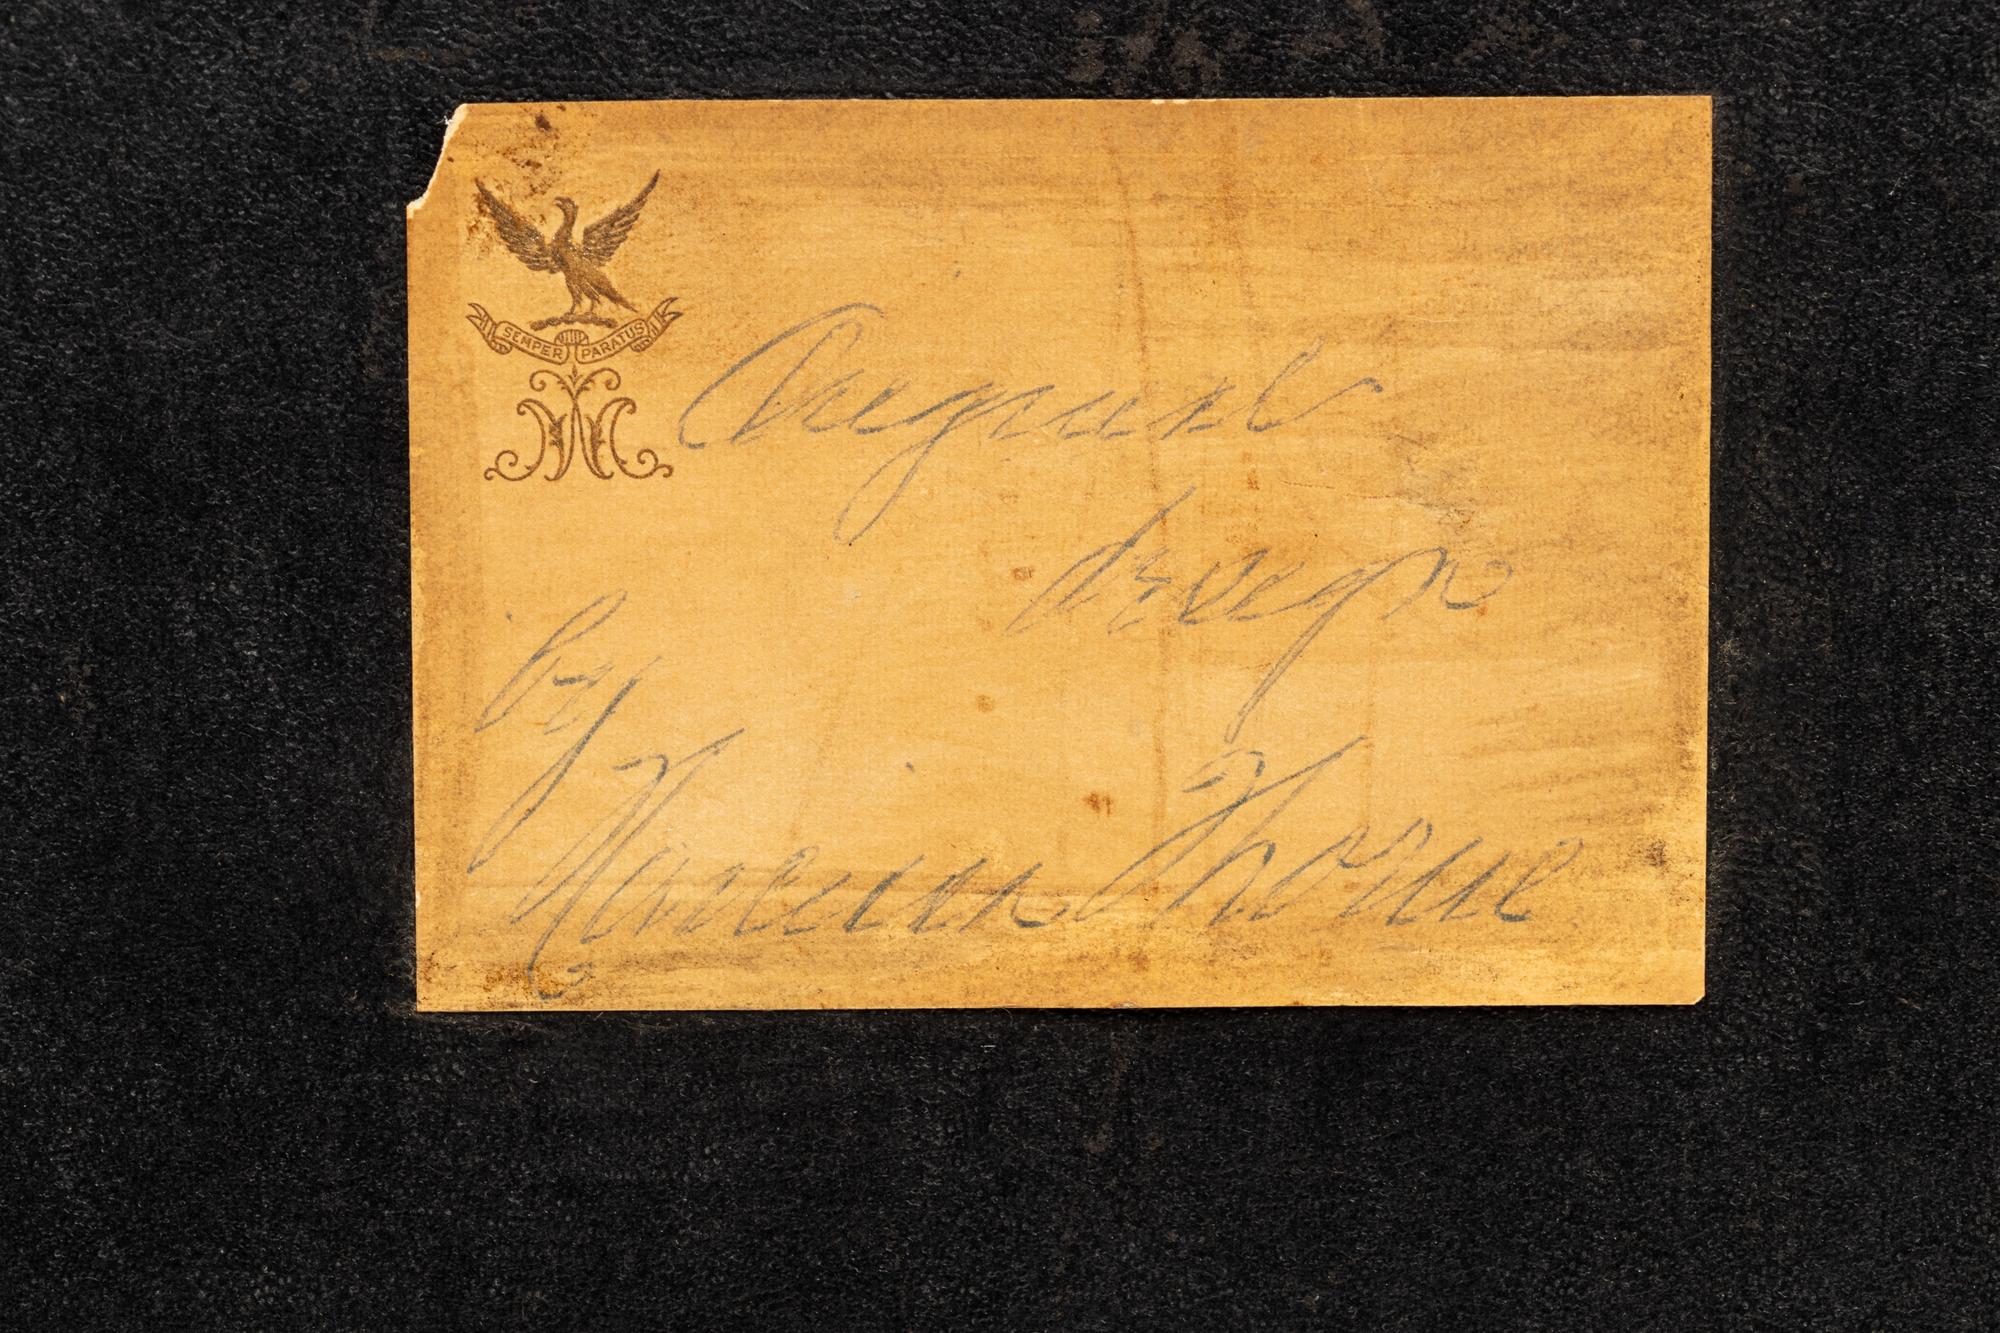 SEMPER PARATUS
Original
design
by
Narcissa Thorne